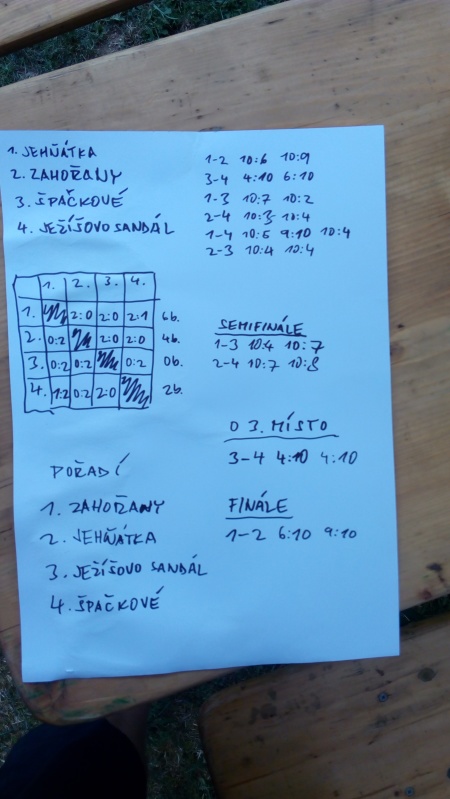 1. JEHŇÁTKA
2. ZAHOŘANY
3. ŠPAČKOVÉ
4. JEŽÍŠOVO SANDÁL
1-2 10:6 10:9
3-4 4:10 6:10
1-3 10:7 10:2
2-4 10:3 10:4
1-4 10:5 9:10 10:4
2-3 10:4 10:4
1. 2. 3. 4.
1. 2:0 2:0 2:1 6b.
2. 0:2 2:0 2:0 4b.
3. 0:2 0:2 0:2 0b.
4. 1:2 0:2 2:0 2b.
SEMIFINÁLE
1-3 10:4 10:7
2-4 10:7 10:8
O 3. MÍSTO
3-4 4:10 4:10
FINÁLE
1-2 6:10 9:10
POŘADÍ
1. ZAHOŘANY
2. JEHŇÁTKA
3. JEŽÍŠOVO SANDÁL
4. ŠPAČKOVÉ